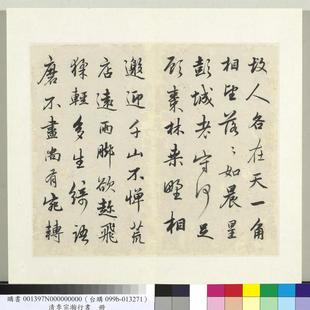 故人各在天一角
相望落々如晨星
彭城老守何足
顧棗林桑野相
邀迎千山不憚荒
店遠兩腳欲趁飛
猱輕多生綺語
磨不盡尚有宛轉
購書 001397N000000000 (台購 099b-013271)
清李宗瀚行書 冊